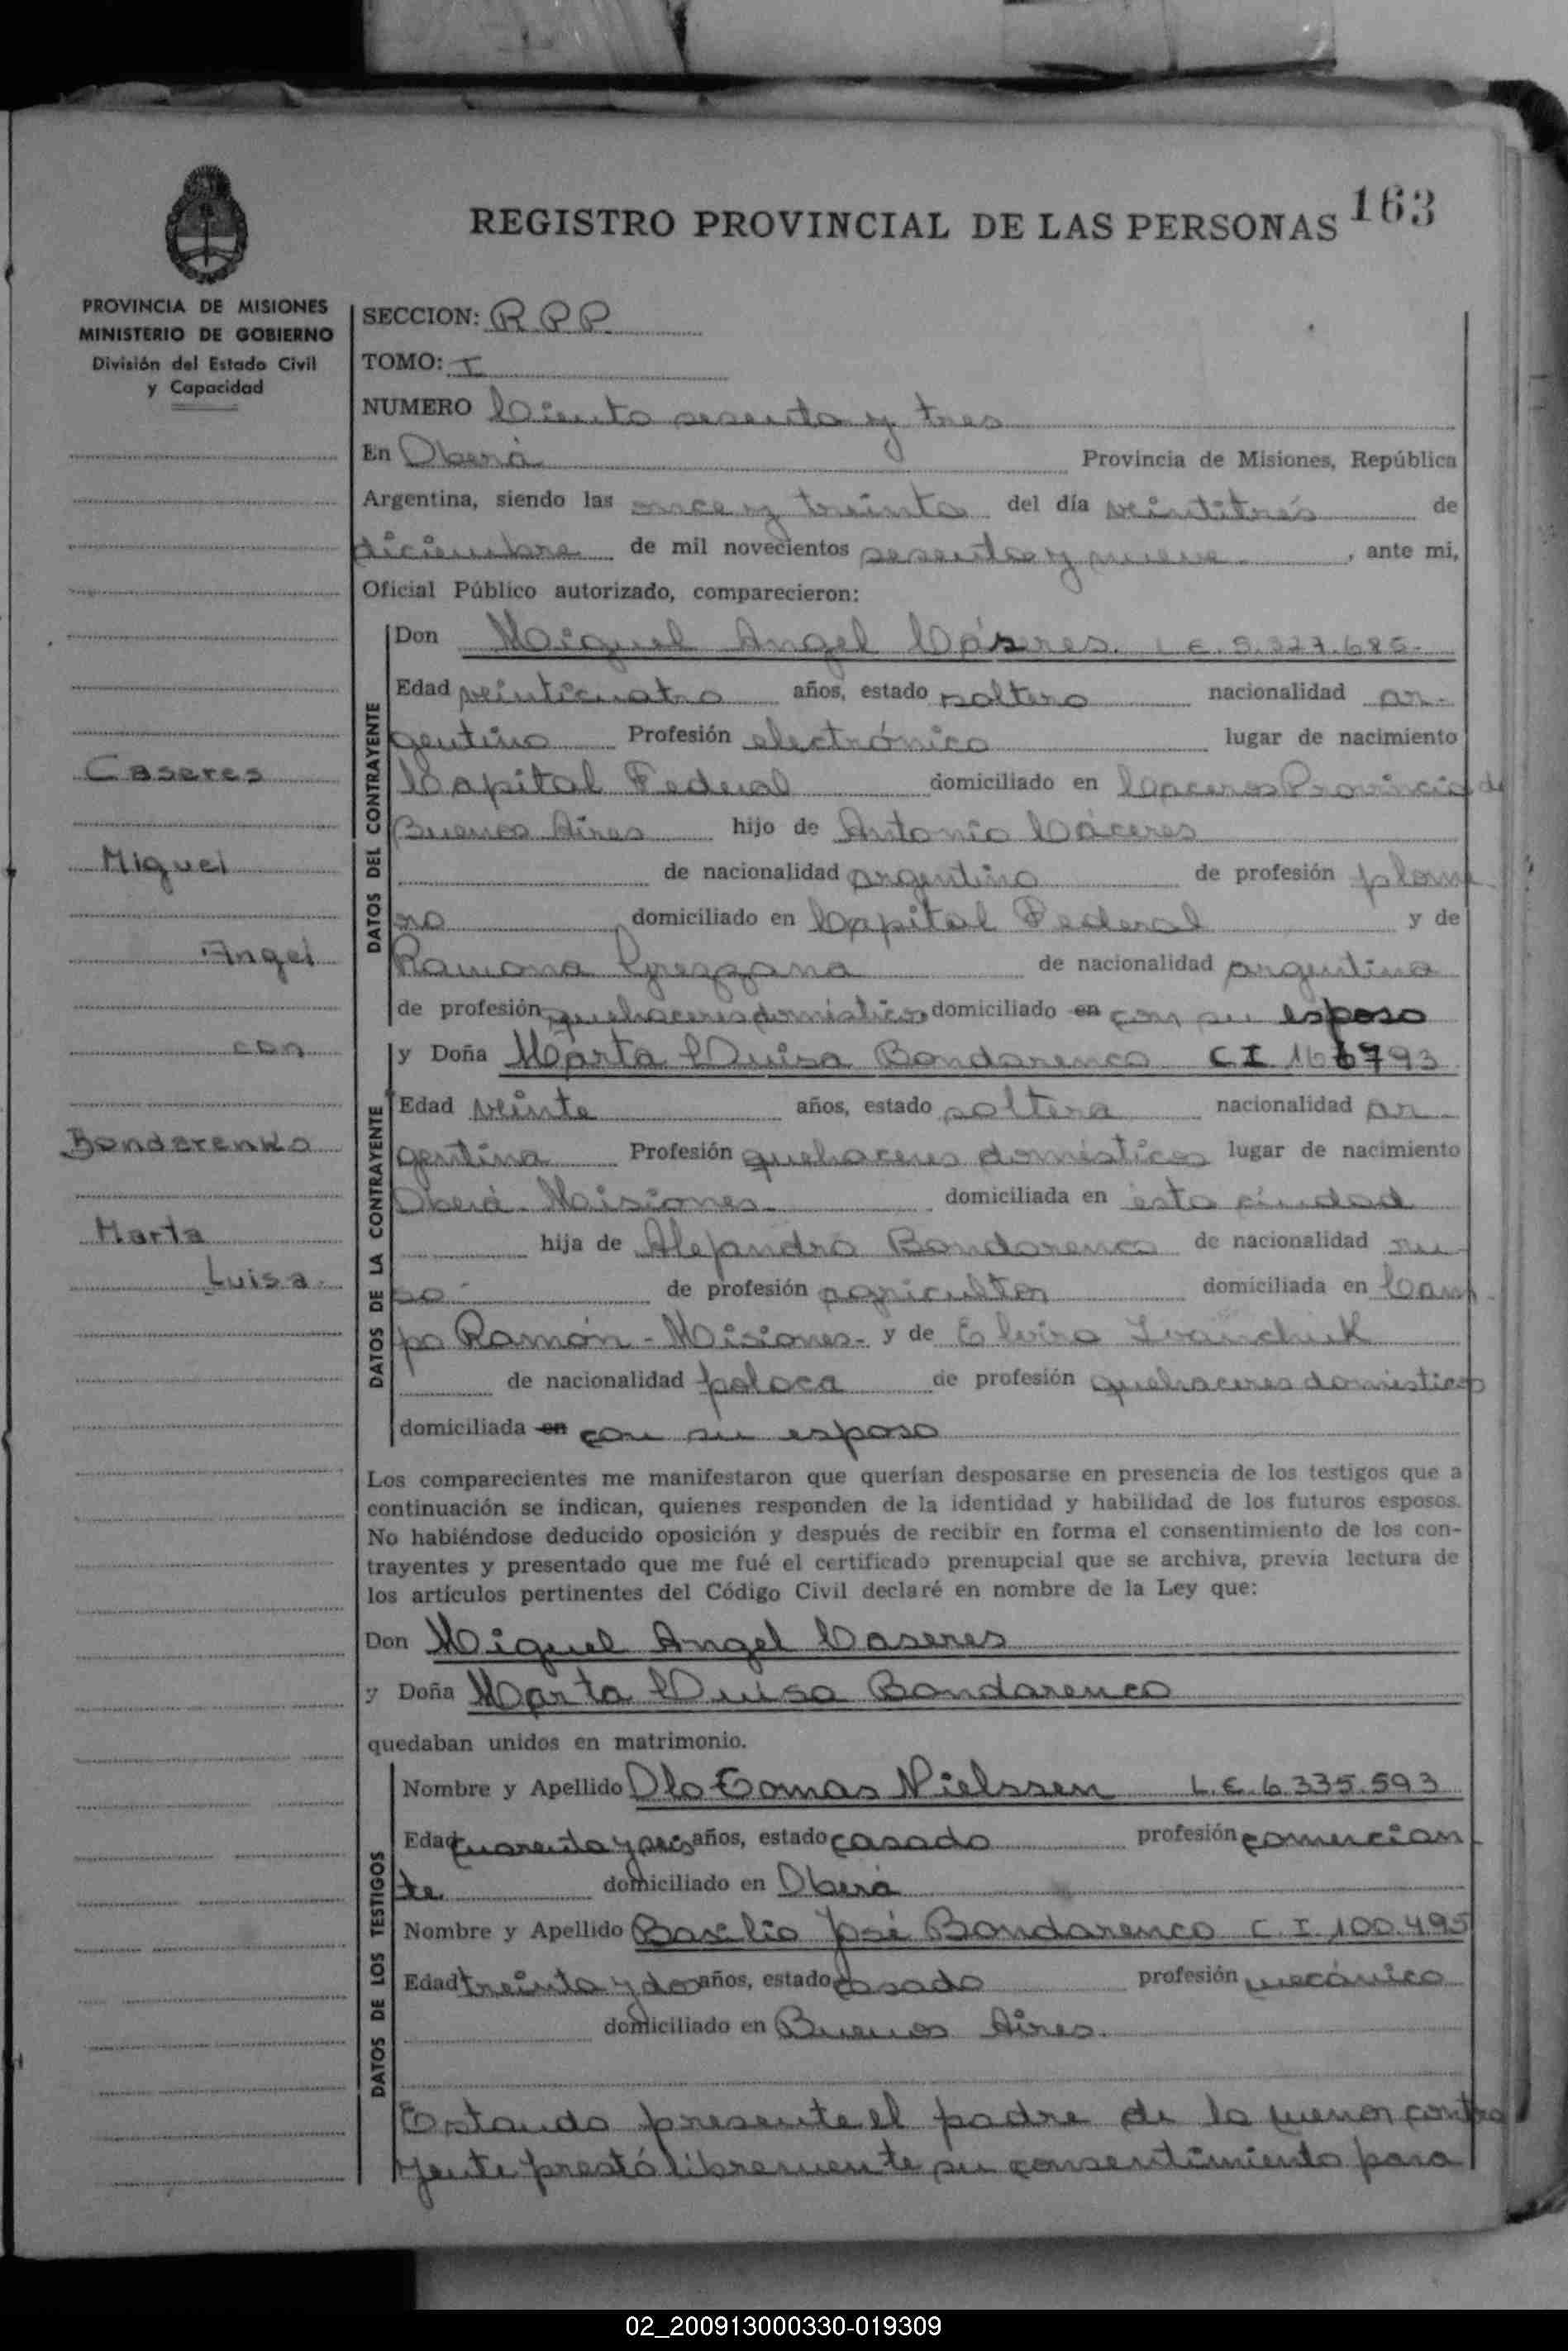 REGISTRO PROVINCIAL DE LAS PERSONAS 163
PROVINCIA DE MISIONES
MINISTERIO DE GOBIERNO
División del Estado Civil
y Capacidad
Caseres
Miguel
Angel
con
Bondarenko
Marta
Luisa.
SECCION: R P P
TOMO: I
NUMERO Ciento sesenta y tres
En Oberá Provincia de Misiones, República
Argentina, siendo las once y treinta del día veintitrés de
diciembre de mil novecientos sesenta y nueve , ante mi,
Oficial Público autorizado, comparecieron:
DATOS DEL CONTRAYENTE
Don Miguel Angel Cáseres. L E.
Edad veinticuatro años, estado soltero nacionalidad ar-
gentino Profesión electrónico lugar de nacimiento
Capital Federal domiciliado en Caseros Provincia de
Buenos Aires hijo de Antonio Cáceres
de nacionalidad argentino de profesión plome
ro domiciliado en Capital Federal y de
Ramona de nacionalidad argentina
de profesión quehaceres domésticos domiciliado en con su esposo
DATOS DE LA CONTRAYENTE
y Doña Marta Luisa Bondarenco C I 166793
Edad veinte años, estado soltera nacionalidad ar-
gentina Profesión quehaceres domésticos lugar de nacimiento
Oberá - Misiones - domiciliada en ésta ciudad
hija de Alejandro Bondarenco de nacionalidad ru
so - de profesión agricultor domiciliada en Cam
po Ramón - Misiones - y de Elvira Ivanchuk
de nacionalidad polaca de profesión quehaceres domésticos
domiciliada en con su esposo
Los comparecientes me manifestaron que querían desposarse en presencia de los testigos que a
continuación se indican, quienes responden de la identidad y habilidad de los futuros esposos.
No habiéndose deducido oposición y después de recibir en forma el consentimiento de los con-
trayentes y presentado que me fué el certificado prenupcial que se archiva, previa lectura de
los artículos pertinentes del Código Civil declaré en nombre de la Ley que:
Don Miguel Angel Caseres
y Doña Marta Luisa Bondarenco
quedaban unidos en matrimonio.
DATOS DE LOS TESTIGOS
Nombre y Apellido Olo Tomas Nielssen L. E. 6.335.593
Edad cuarenta y seis años, estado casado profesión comercian
te domiciliado en Oberá
Nombre y Apellido Basilio José Bondarenco C. I. 100.495
Edad treinta y dos años, estado casado profesión mecánico
domiciliado en Buenos Aires.
Estando presente el padre de la menor contra
yente prestó libremente su consentimiento para
02_200913000330-019309